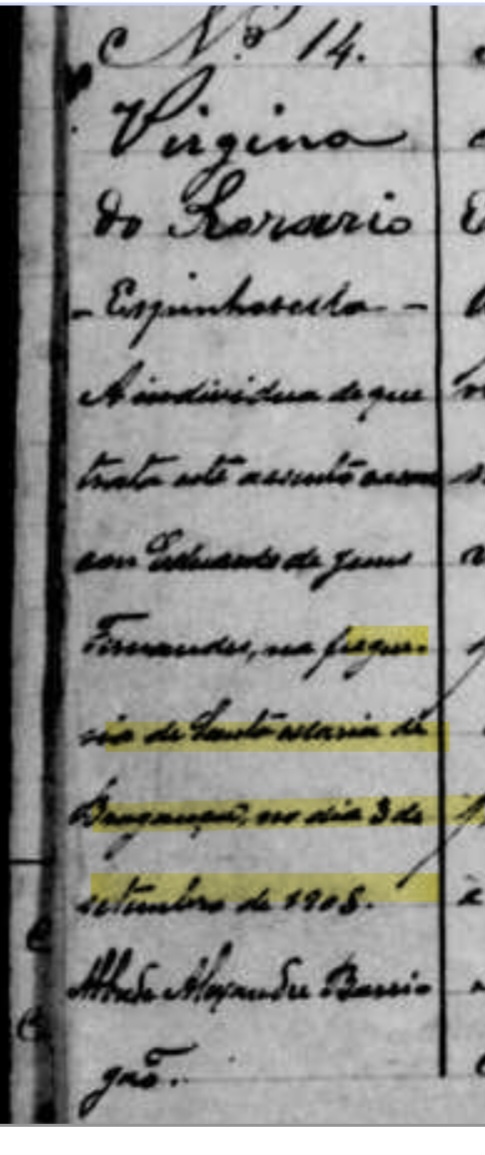 Nº 14.
Virgina
do Rosario
- Espinhosella -
A individua de que
trata este assento casou
com Eduardo de Jesus
Fernandes, na fregue-
sia de Santa Maria de
Bragança, no dia 3 de
setembro de 1908.
Abbade Alexandre Barrio